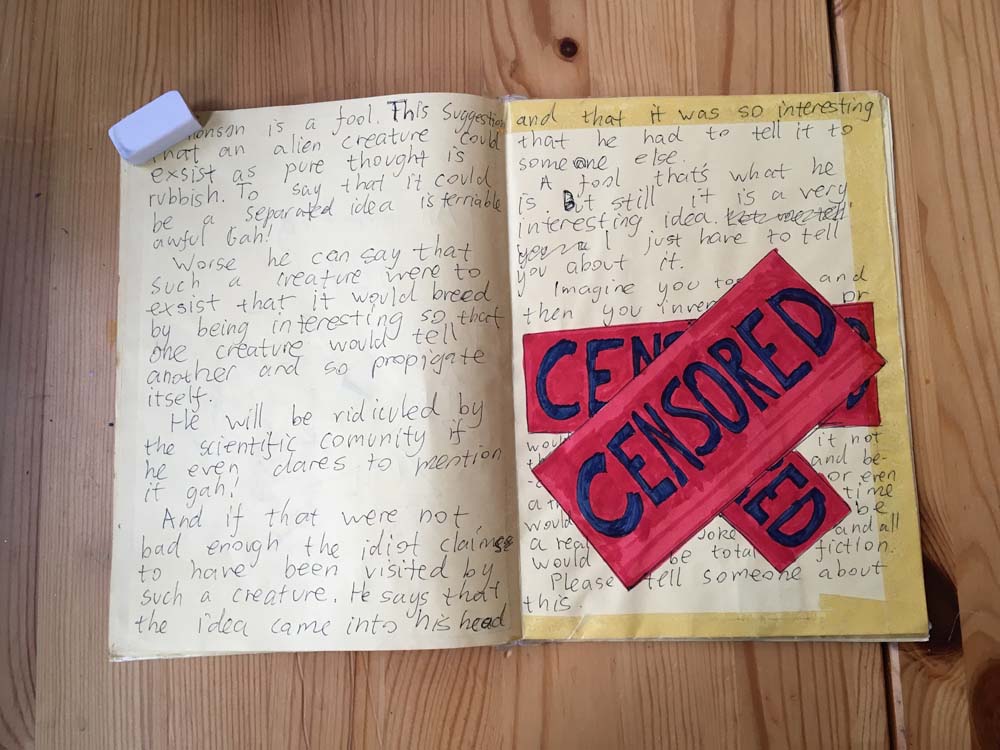 onson is a fool. This Suggestion
that an alien creature could
exsist as pure thought is
rubbish. To say that it could
be a separated idea is terriable
awful Gah!
Worse he can say that
such a creature were to
exsist that it would breed
by being interesting so that
one creature would tell
another and so propigate
itself.
He will be ridiculed by
the scientific comunity if
he even dares to mention
it gah!
And if that were not
bad enough the idiot claims
to have been visited by
such a creature. He says that
the idea came into his head
and that it was so interesting
that he had to tell it to
someone else.
A fool that's what he
is But still it is a very
interesting idea. Let me tell
you a I just have to tell
you about it.
Imagine you to and
then you inve or
CENSORED
CENSORED
woul it not
th and be-
or even
a time
would be
a real joke and all
would be total fiction.
Please tell someone about
this.